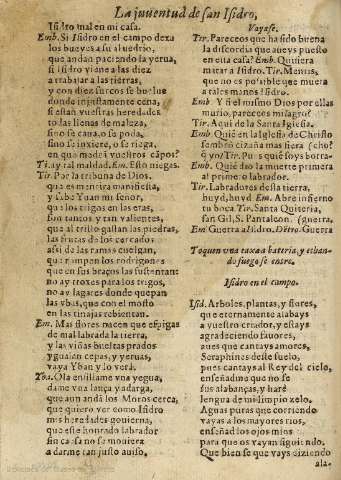 La juventud de san Isidro,
Isidro mal en mi casa.
Emb. Si Isidro en el campo dexa
los bueyes a su aluedrio,
que andan paciendo la yerua,
si Isidro viene a las diez
a trabajar a estas tierras,
y con diez surcos se buelue
donde injustamente cena,
si estan vuestras heredades
todas llenas de maleza,
sino se caua, o se poda,
sino se inxiere, o se riega,
en que modo
Ti. ay tal maldad. Em. Esto niegas.
Tir. Por la tribuna de Dios,
que es mentira manifiesta,
y sabe Yuan mi señor,
que los trigos en las eras,
son tantos y tan valientes,
que al trillo gastan las piedras,
las frutas de los cercados
assi de las ramas cuelgan,
que rompen los rodrigones
que en sus braços las sustentan:
no ay troxes para los trigos,
no ay lagares donde quepan
las vbas, que con el mosto
en las tinajas rebientan.
Em. Mas flores nacen que espigas
de mal labrada la tierra,
y las viñas hechas prados
y guian cepas, y yeruas,
vaya Yban y lo verà.
Yba. Ola ensillame vna yegua,
dame vna lança y adarga,
que aun andã los Moros cerca,
que quiero ver como Isidro
mis heredades gouierna,
que este honrado labrador
sin causa no se mouiera
a darme tan justo auiso.
Vayase.
Tir. Pareceos que ha sido buena
la discordia que aueys puesto
en esta casa? Emb. Quisiera
matar a Isidro. Tir. Mentis,
que no es possible que muera
a tales manos Isidro.
Emb. Y si el mismo Dios por ellas
murio, pareceos milagro?
Tir. Aqui de la Santa Iglesia.
Emb. Quiẽ en la Iglesia de Christo
sembrò cizaña mas fiera
yo? Tir. Pues quiẽ soys
Emb. Quiẽ dio la muerte primera
al primero labrador.
Tir. Labradores desta tierra,
huyd, huyd. Em. Abre infierno
tu boca. Tir. Santa Quiteria,
san Gil, S. Pantaleon. (guerra,
Em. Guerra a Isidro. Dẽtro. Guerra
Toquen vna caxa a bateria, y echando
fuego se entre.
Isidro en el campo.
Isid. Arboles, plantas, y flores,
que eternamente alabays
a vuestro criador, y estays
agradeciendo fauores,
aues que cantays amores,
Seraphines deste suelo,
pues cantays al Rey del cielo,
enseñadme que no se
sus alabanças, y harè
lengua de mi limpio zelo.
Aguas puras que corriendo
vayas a los mayores rios,
enseñad los ojos mios
para que os vayan siguiendo.
Que bien se que vays diziendo
ala-